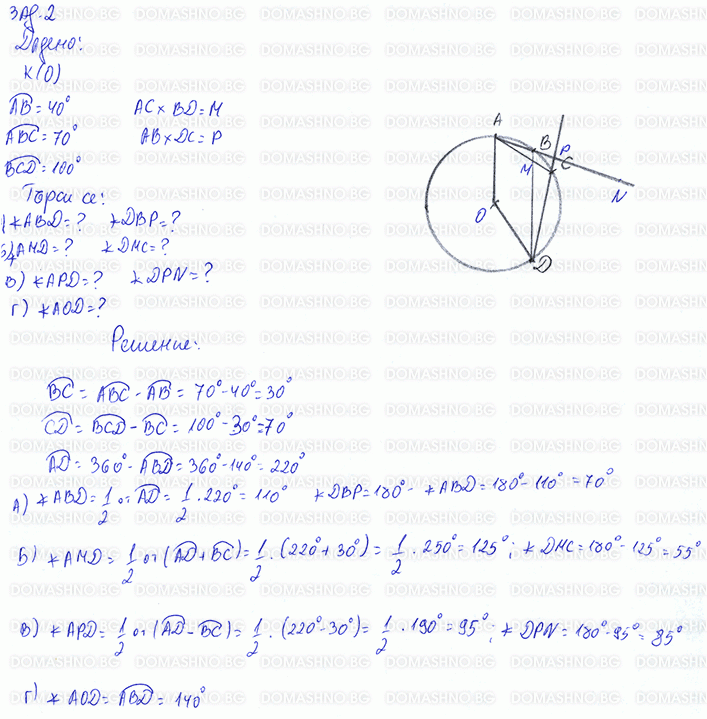 Зад. 2
Дадено:
K(O)
AB = 40° AC × BD = M
ABC = 70° AB × DC = P
BCD = 100°
Търси се:
∢ABD = ? ∢DBP = ?
∢AMD = ? ∢DMC = ?
в) ∢APD = ? ∢DPN = ?
г) ∢AOD = ?
A B P M C O N D
Решение:
BC = ABC - AB = 70° - 40° = 30°
CD = BCD - BC = 100° - 30° = 70°
AD = 360° - ABD = 360° - 140° = 220°
А) ∢ABD = 1/2 от AD = 1/2 . 220° = 110° ∢DBP = 180° - ∢ABD = 180° - 110° = 70°
Б) ∢AMD = 1/2 от (AD + BC) = 1/2 . (220° + 30°) = 1/2 . 250° = 125°; ∢DMC = 180° - 125° = 55°
в) ∢APD = 1/2 от (AD - BC) = 1/2 . (220° - 30°) = 1/2 . 190° = 95°; ∢DPN = 180° - 95° = 85°
г) ∢AOD = ABD = 140°
DOMASHNO.BG